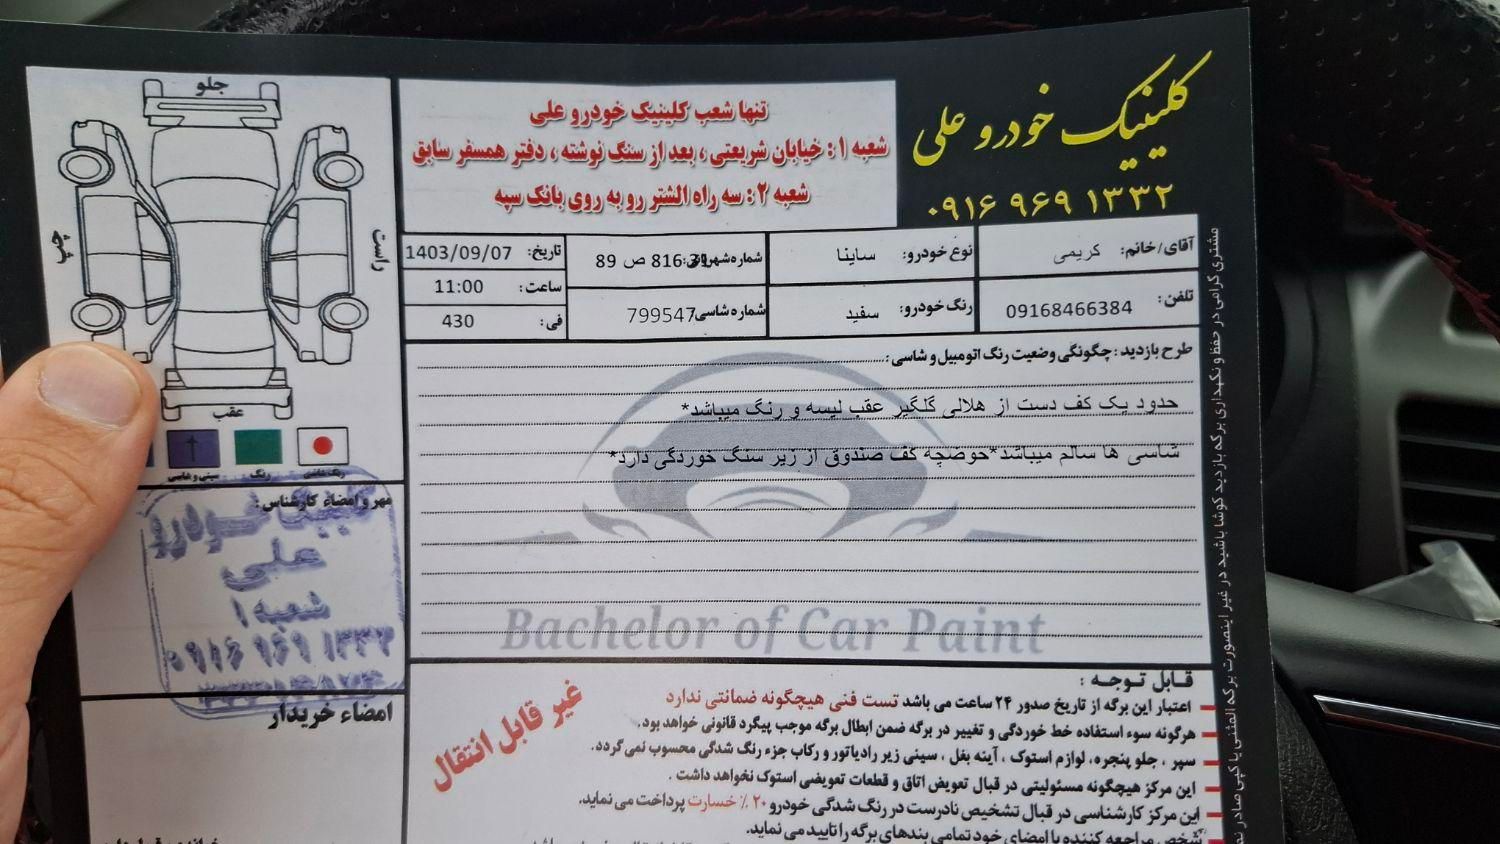 کلینیک خودرو علی
۰۹۱۶ ۹۶۹ ۱۳۳۲
تنها شعب کلینیک خودرو علی
شعبه ۱ : خیابان شریعتی ، بعد از سنگ نوشته ، دفتر همسفر سابق
شعبه ۲ : سه راه الشتر رو به روی بانک سپه
جلو
راست
چپ
عقب
رنگ نقاشی
رنگ
سینی و شاسی
آقای/خانم: کریمی
نوع خودرو: ساینا
شماره شهربانی: 816 ص 89
تاریخ: 1403/09/07
تلفن: 09168466384
رنگ خودرو: سفید
شماره شاسی: 799547
ساعت: 11:00
فی: 430
طرح بازدید : چگونگی وضعیت رنگ اتومبیل و شاسی :
حدود یک کف دست از هلالی گلگیر عقب لیسه و رنگ میباشد*
شاسی ها سالم میباشد*حوضچه کف صندوق از زیر سنگ خوردگی دارد*
Bachelor of Car Paint
مهر و امضاء کارشناس :
کلینیک خودرو
علی
شعبه ۱
۰۹۱۶ ۹۶۹ ۱۳۳۲
امضاء خریدار
غیر قابل انتقال
قابل توجه :
اعتبار این برگه از تاریخ صدور ۲۴ ساعت می باشد تست فنی هیچگونه ضمانتی ندارد
هرگونه سوء استفاده خط خوردگی و تغییر در برگه ضمن ابطال برگه موجب پیگرد قانونی خواهد بود.
سپر ، جلو پنجره، لوازم استوک ، آینه بغل ، سینی زیر رادیاتور و رکاب جزء رنگ شدگی محسوب نمی گردد.
این مرکز هیچگونه مسئولیتی در قبال تعویض اتاق و قطعات تعویضی استوک نخواهد داشت .
این مرکز کارشناسی در قبال تشخیص نادرست در رنگ شدگی خودرو ۲۰ ٪ خسارت پرداخت می نماید.
شخص مراجعه کننده با امضای خود تمامی بندهای برگه را تایید می نماید.
مشتری گرامی در حفظ و نگهداری برگه بازدید کوشا باشید در غیر اینصورت برگه المثنی یا کپی صادر